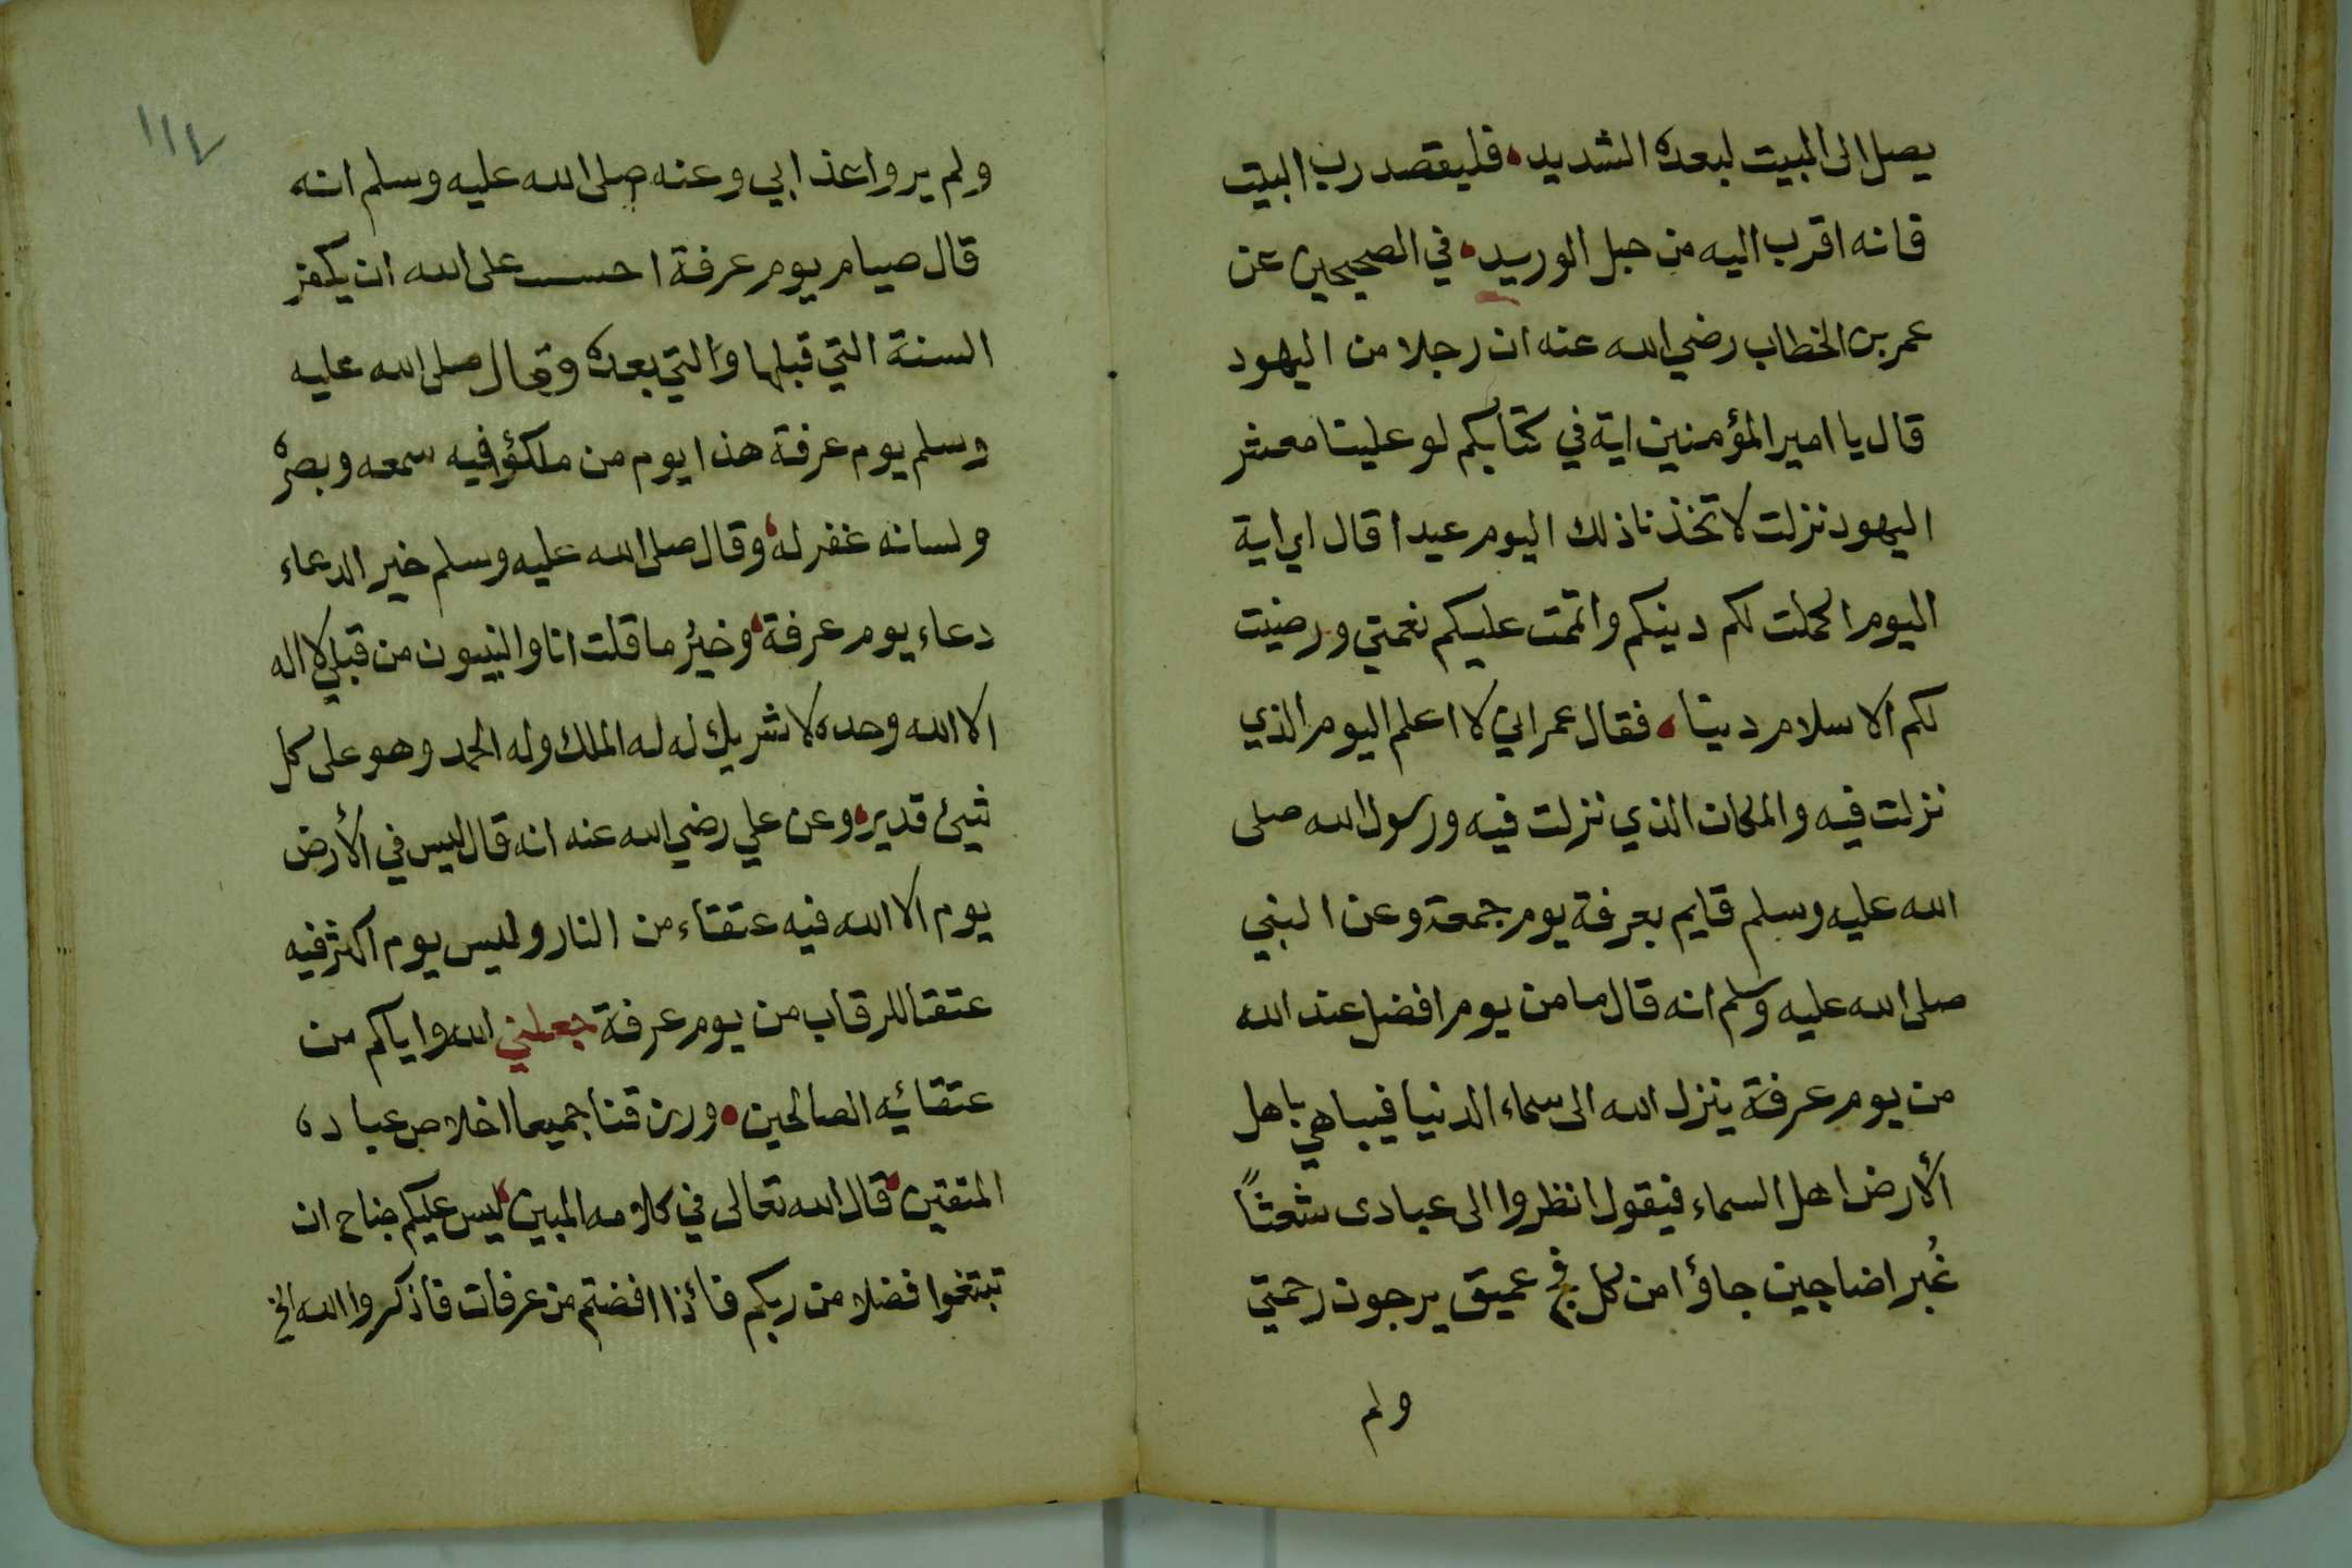 يصل الى البيت لبعده الشديد، فليقصد رب البيت
فانه اقرب اليه من حبل الوريد، في الصحيحين عن
عمر بن الخطاب رضي الله عنه ان رجلا من اليهود
قال يا امير المؤمنين اية في كتابكم لو علينا معشر
اليهود نزلت لاتخذنا ذلك اليوم عيدا قال اي اية
اليوم اكملت لكم دينكم واتممت عليكم نعمتي ورضيت
لكم الاسلام دينا، فقال عمر اني لا اعلم اليوم الذي
نزلت فيه والمكان الذي نزلت فيه ورسول الله صلى
الله عليه وسلم قايم بعرفة يوم جمعة وعن النبي
صلى الله عليه وسلم انه قال ما من يوم افضل عند الله
من يوم عرفة ينزل الله الى سماء الدنيا فيباهي باهل
الأرض اهل السماء فيقول انظروا الى عبادى شعثاً
غُبرا ضاجين جاؤا من كل فج عميق يرجون رحمتي
ولم
١١٧
ولم يروا عذابي وعنه صلى الله عليه وسلم انه
قال صيام يوم عرفة احسب على الله ان يكفر
السنة التي قبلها والتي بعده وقال صلى الله عليه
وسلم يوم عرفة هذا يوم من ملك فيه سمعه وبصره
ولسانه غفر له، وقال صلى الله عليه وسلم خير الدعاء
دعاء يوم عرفة، وخيرُ ما قلت انا والنبيون من قبلي لا اله
الا الله وحده لا شريك له له الملك وله الحمد وهو على كل
شيئ قدير، وعن علي رضي الله عنه انه قال ليس في الأرض
يوم الا الله فيه عتقاء من النار وليس يوم اكثر فيه
عتقا للرقاب من يوم عرفة جعلني الله واياكم من
عتقائه الصالحين، ورزقنا جميعا اخلاص عباده
المتقين، قال الله تعالى في كلامه المبين، ليس عليكم جناح ان
تبتغوا فضلا من ربكم فأذا افضتم من عرفات فاذكروا الله الخ